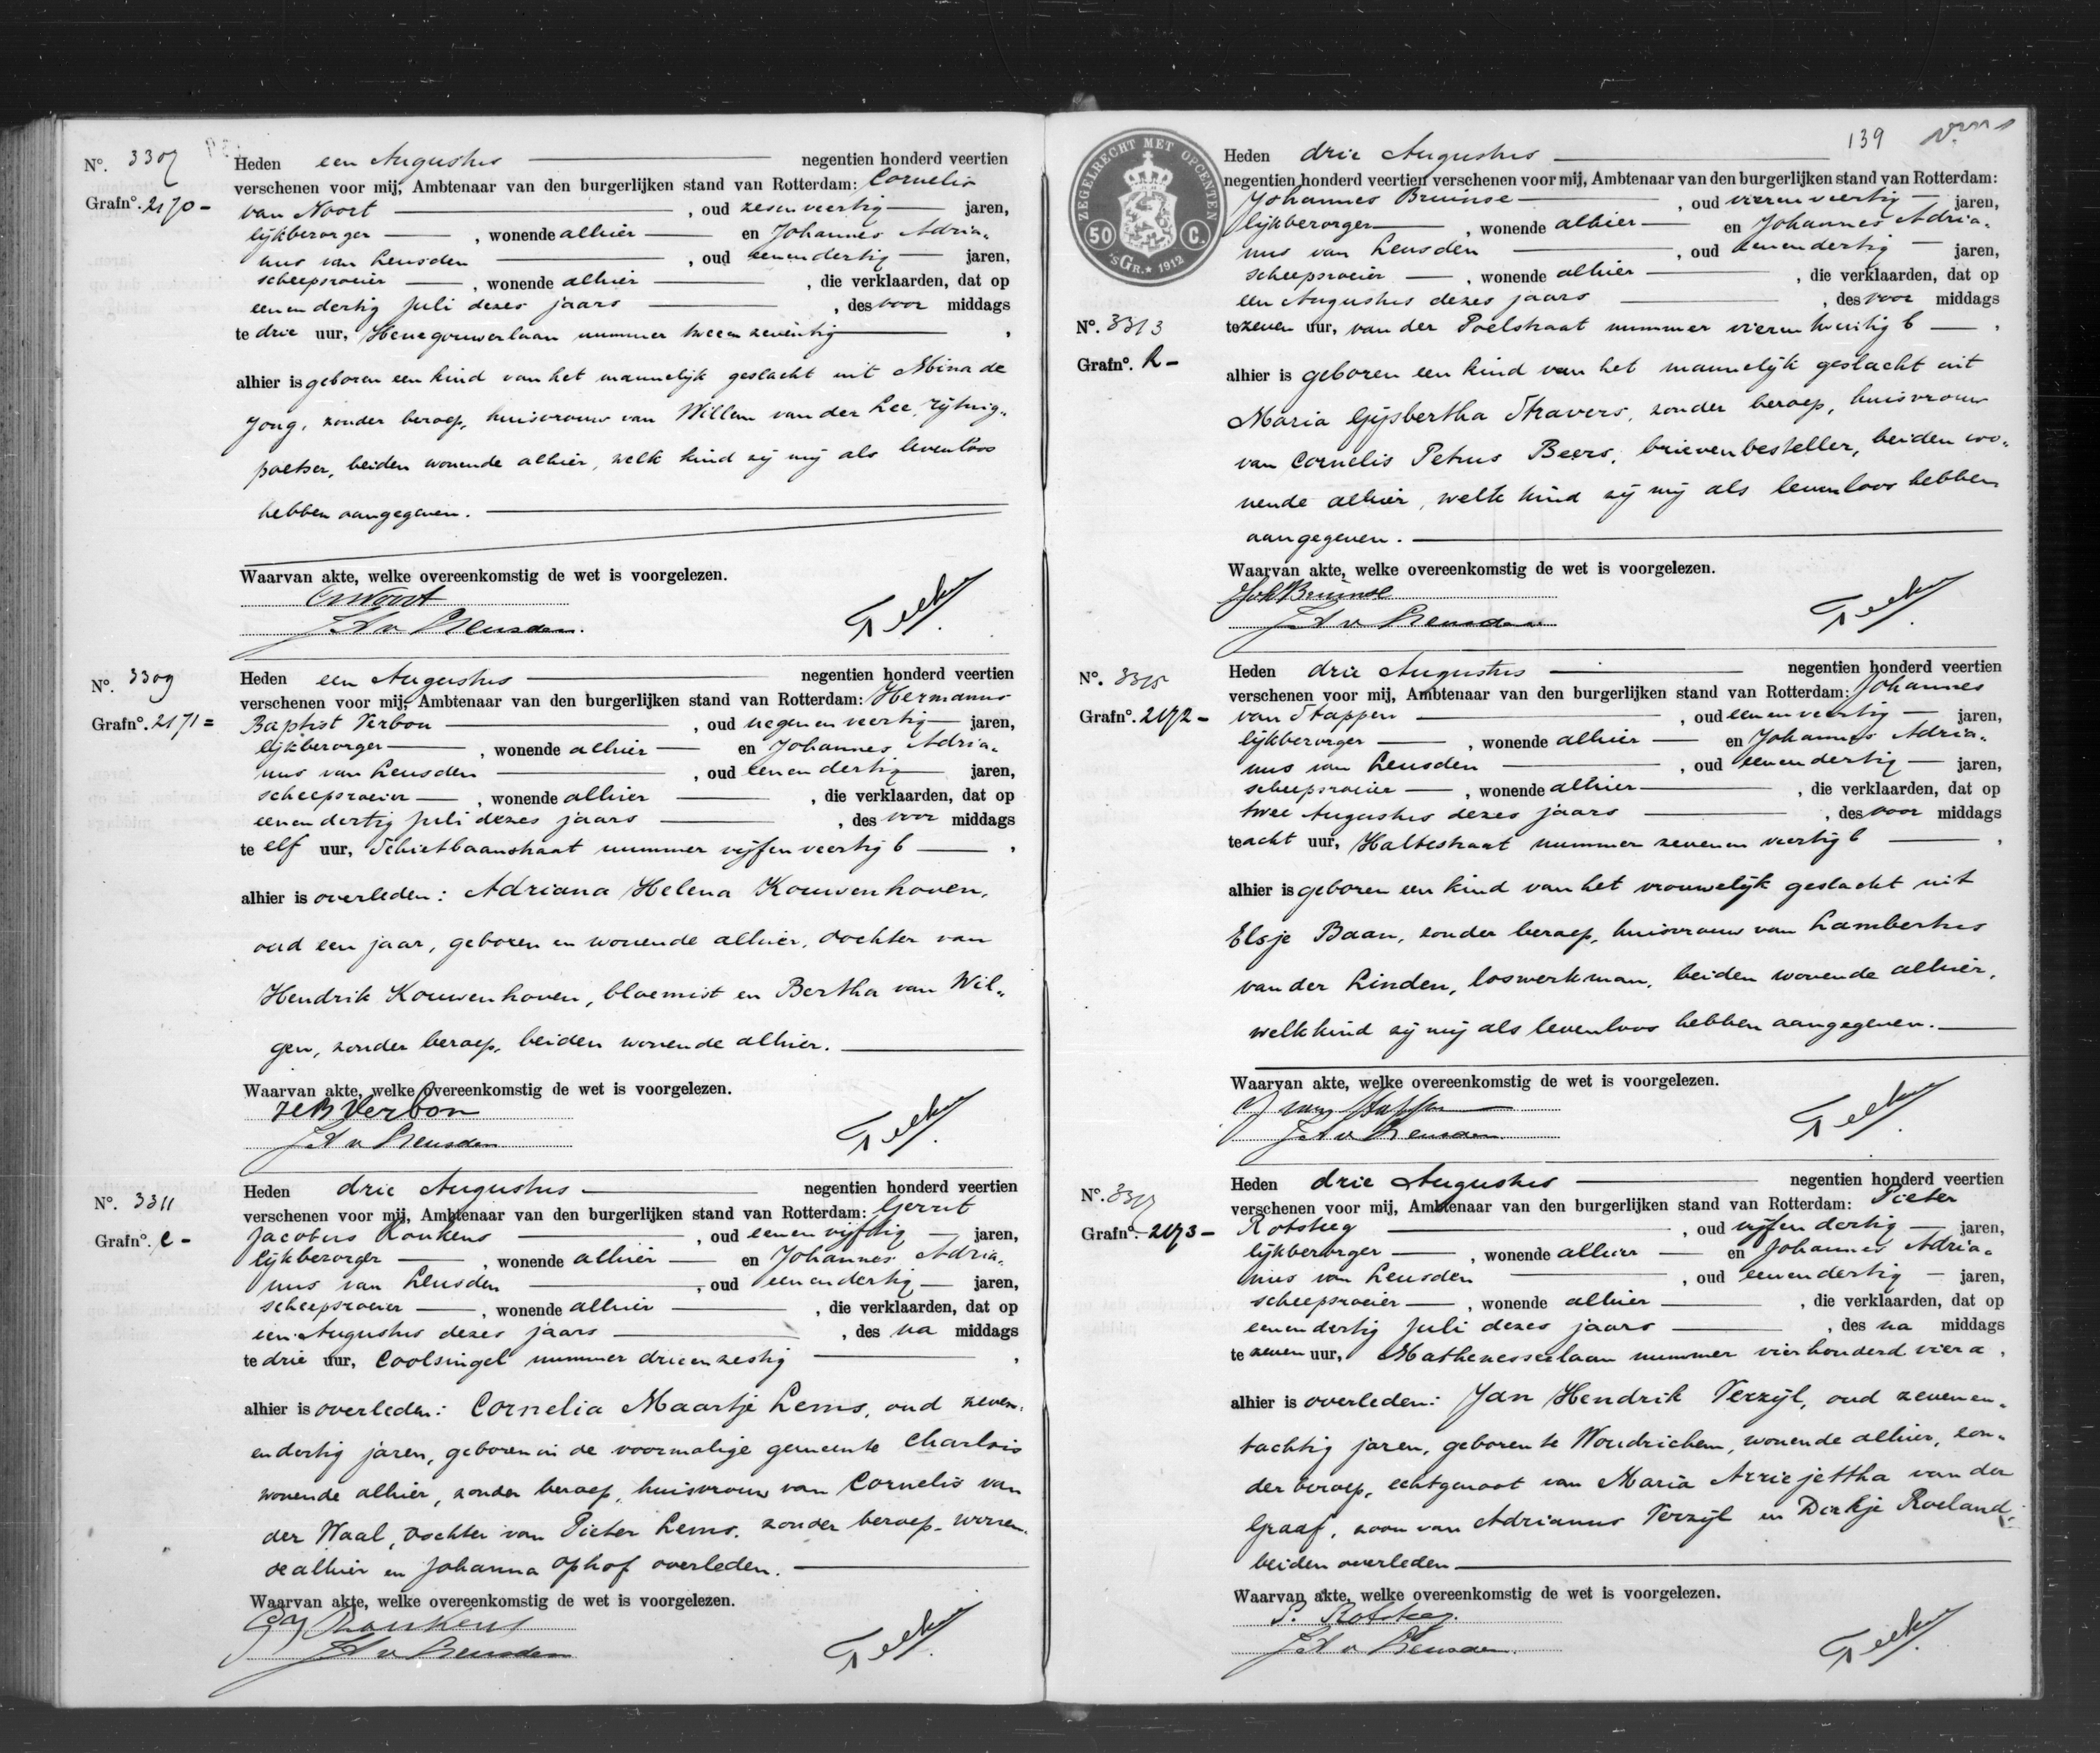 Nº. 3307
Grafnº. 2170 -
Heden een Augustus negentien honderd veertien
verschenen voor mij, Ambtenaar van den burgerlijken stand van Rotterdam: Cornelis
van Noort , oud zesenveertig jaren,
lijkbezorger , wonende alhier en Johannes Adria„
nus van Leusden , oud eenendertig jaren,
scheepsroeier , wonende alhier , die verklaarden, dat op
eenendertig Juli dezes jaars , des voor middags
te drie uur, Henegouwerlaan nummer tweeenzeventig ,
alhier is geboren een kind van het mannelijk geslacht uit Mina de
Jong, zonder beroep, huisvrouw van Willem van der Lee, rijtuig„
poetser, beiden wonende alhier, welk kind zij mij als levenloos
hebben aangegeven.
Waarvan akte, welke overeenkomstig de wet is voorgelezen.
CvNoort
J A v Leusden.
Nº. 3309
Grafnº. 2171 =
Heden een Augustus negentien honderd veertien
verschenen voor mij, Ambtenaar van den burgerlijken stand van Rotterdam: Hermanus
Baptist Verbon , oud negenenveertig jaren,
lijkbezorger , wonende alhier en Johannes Adria„
nus van Leusden , oud eenendertig jaren,
scheepsroeier , wonende alhier , die verklaarden, dat op
eenendertig Juli dezes jaars , des voor middags
te elf uur, Schietbaanstraat nummer vijfenveertig b ,
alhier is overleden: Adriana Helena Kouwenhoven,
oud een jaar, geboren en wonende alhier, dochter van
Hendrik Kouwenhoven, bloemist en Bertha van Wil„
gen, zonder beroep, beiden wonende alhier.
Waarvan akte, welke overeenkomstig de wet is voorgelezen.
HB Verbon
J A v Leusden
Nº. 3311
Grafnº. C -
Heden drie Augustus negentien honderd veertien
verschenen voor mij, Ambtenaar van den burgerlijken stand van Rotterdam: Gerrit
Jacobus Ronkens , oud eenenvijftig jaren,
lijkbezorger , wonende alhier en Johannes Adria„
nus van Leusden , oud eenendertig jaren,
scheepsroeier , wonende alhier , die verklaarden, dat op
een Augustus dezes jaars , des na middags
te drie uur, Coolsingel nummer drieenzestig ,
alhier is overleden: Cornelia Maartje Lems, oud zeven„
endertig jaren, geboren in de voormalige gemeente Charlois
wonende alhier, zonder beroep, huisvrouw van Cornelis van
der Waal, dochter van Pieter Lems, zonder beroep, wonen„
de alhier en Johanna Ophof overleden.
Waarvan akte, welke overeenkomstig de wet is voorgelezen.
GJ Ronkens
J A v Leusden
139
ZEGELRECHT MET OPCENTEN
50 C.
'S GR. * 1912
Heden drie Augustus
negentien honderd veertien verschenen voor mij, Ambtenaar van den burgerlijken stand van Rotterdam:
Johannes Bruinse , oud vierenveertig jaren,
lijkbezorger , wonende alhier en Johannes Adria„
nus van Leusden , oud eenendertig jaren,
scheepsroeier , wonende alhier , die verklaarden, dat op
een Augustus dezes jaars , des voor middags
Nº. 3313
te zeven uur, van der Poelstraat nummer vierentwintig b ,
Grafnº. R -
alhier is geboren een kind van het mannelijk geslacht uit
Maria Gijsbertha Stravers, zonder beroep, huisvrouw
van Cornelis Petrus Beers, brievenbesteller, beiden wo„
nende alhier, welk kind zij mij als levenloos hebben
aangegeven.
Waarvan akte, welke overeenkomstig de wet is voorgelezen.
Joh Bruinse
J A v Leusden
Nº. 3315
Grafnº. 2172 -
Heden drie Augustus negentien honderd veertien
verschenen voor mij, Ambtenaar van den burgerlijken stand van Rotterdam: Johannes
van Stappen , oud eenenveertig jaren,
lijkbezorger , wonende alhier en Johannes Adria„
nus van Leusden , oud eenendertig jaren,
scheepsroeier , wonende alhier , die verklaarden, dat op
twee Augustus dezes jaars , des voor middags
te acht uur, Haltestraat nummer zevenenveertig b ,
alhier is geboren een kind van het vrouwelijk geslacht uit
Elsje Baan, zonder beroep, huisvrouw van Lambertus
van der Linden, loswerkman, beiden wonende alhier,
welk kind zij mij als levenloos hebben aangegeven.
Waarvan akte, welke overeenkomstig de wet is voorgelezen.
J van Stappen
J A v Leusden
Nº. 3317
Grafnº. 2173 -
Heden drie Augustus negentien honderd veertien
verschenen voor mij, Ambtenaar van den burgerlijken stand van Rotterdam: Pieter
Rotsteeg , oud vijfendertig jaren,
lijkbezorger , wonende alhier en Johannes Adria„
nus van Leusden , oud eenendertig jaren,
scheepsroeier , wonende alhier , die verklaarden, dat op
eenendertig Juli dezes jaars , des na middags
te zeven uur, Mathenesserlaan nummer vierhonderd vier a ,
alhier is overleden: Jan Hendrik Verzijl, oud zevenen„
tachtig jaren, geboren te Woudrichem, wonende alhier, zon„
der beroep, echtgenoot van Maria Arriejettha van der
Graaf, zoon van Adrianus Verzijl en Dirkje Roeland,
beiden overleden
Waarvan akte, welke overeenkomstig de wet is voorgelezen.
P. Rotsteeg.
J A v Leusden.